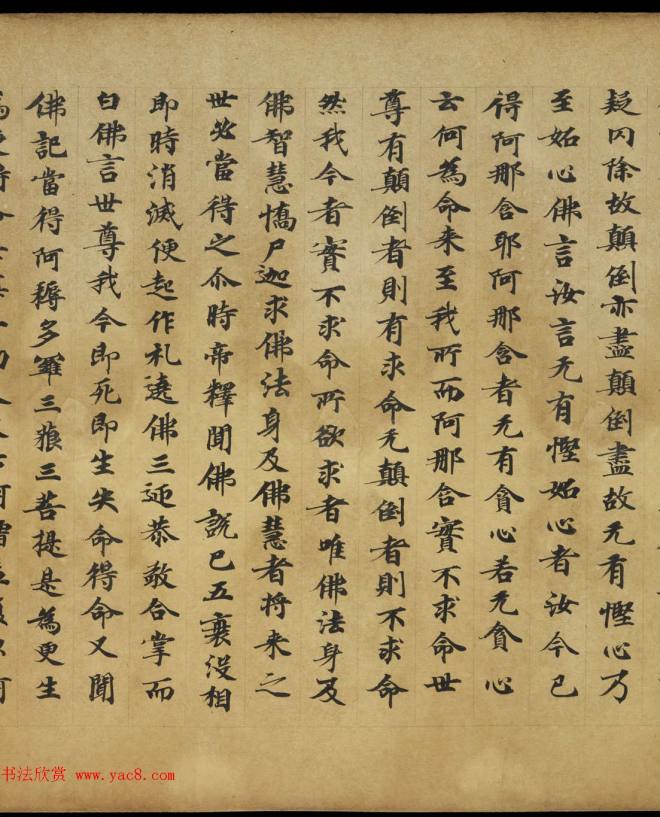 疑冈除故顛倒亦盡顛倒盡故无有慳心乃
至妬心佛言汝言无有慳妬心者汝今已
得阿那含耶阿那含者无有貪心若无貪心
云何為命来至我所而阿那含實不求命世
尊有顛倒者則有求命无顛倒者則不求命
然我今者實不求命所欲求者唯佛法身及
佛智慧憍尸迦求佛法身及佛慧者将来之
世必當得之尒時帝釋聞佛說已五衰没相
即時消滅便起作礼遶佛三迊恭敬合掌而
白佛言世尊我今即死即生失命得命又聞
佛記當得阿耨多羅三藐三菩提是為更生
书法欣赏 www.yac8.com